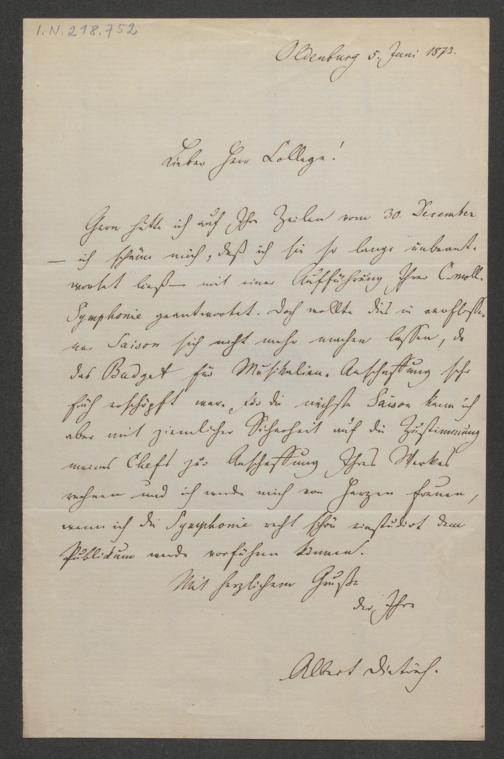 I.N. 218.752
Oldenburg 5. Juni 1873.
Lieber Herr College!
Gern hätte ich auf Ihre Zeilen vom 30. December
— ich schäme mich, daß ich sie so lange unbeant-
wortet ließ — mit einer Aufführung Ihrer C moll-
Symphonie geantwortet. Doch wollte dies in verflosse-
ner Saison sich nicht mehr machen lassen, da
das Budget für Musikalien-Anschaffung sehr
früh erschöpft war. Für die nächste Saison kann ich
aber mit ziemlicher Sicherheit auf die Zustimmung
meines Chefs zur Anschaffung Ihres Werkes
rechnen und ich werde mich von Herzen freuen,
wenn ich die Symphonie recht schön einstudirt dem
Publikum werde vorführen können.
Mit herzlichem Gruße
der Ihre
Albert Dietrich.